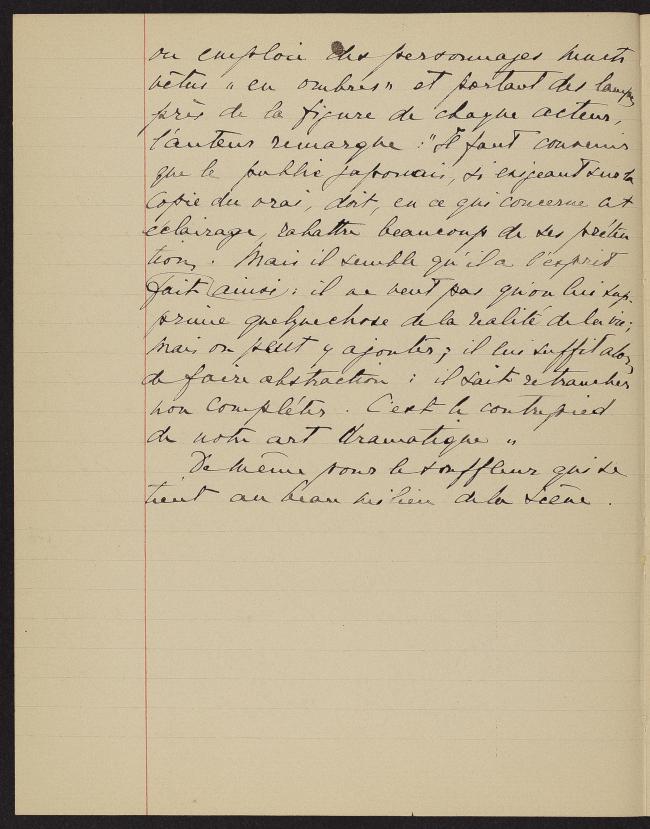 on emploie des personnages muets
vêtus "en ombres" et portant des lampes
près de la figure de chaque acteur,
l'auteur remarque : "Il faut convenir
que le public japonais, si exigeant sur la
copie du vrai, doit, en ce qui concerne cet
éclairage, rabattre beaucoup de ses préten
tions. Mais il semble qu'il a l'esprit
fait ainsi : il ne veut pas qu'on lui sup-
prime quelque chose de la réalité de la vie;
mais on peut y ajouter; il lui suffit alors
de faire abstraction : il sait retrancher
non compléter. C'est le contrepied
de notre art dramatique "
De même pour le souffleur qui se
tient au beau milieu de la scène.